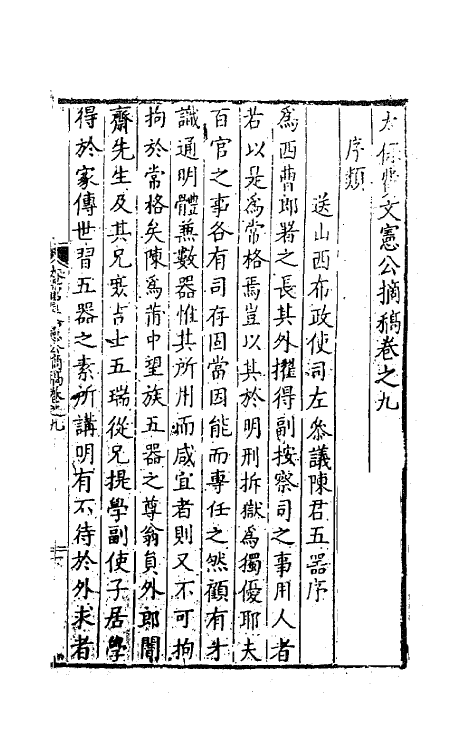 太保費文憲公摘稿卷之九
序類
送山西布政使司左叅議陳君五器序
爲西曹郎署之長其外擢得副按察司之事用人者
若以是爲常格焉豈以其於明刑折獄爲獨優耶夫
百官之事各有司存固當因能而專任之然顧有才
識通明體兼數器惟其所用而咸宜者則又不可拘
拘於常格矣陳爲莆中望族五器之尊翁員外郎闇
齋先生及其兄庶吉士五瑞從兄提學副使子居學
得於家傳世習五器之素所講明有不待於外求者
文憲公摘稿卷之九